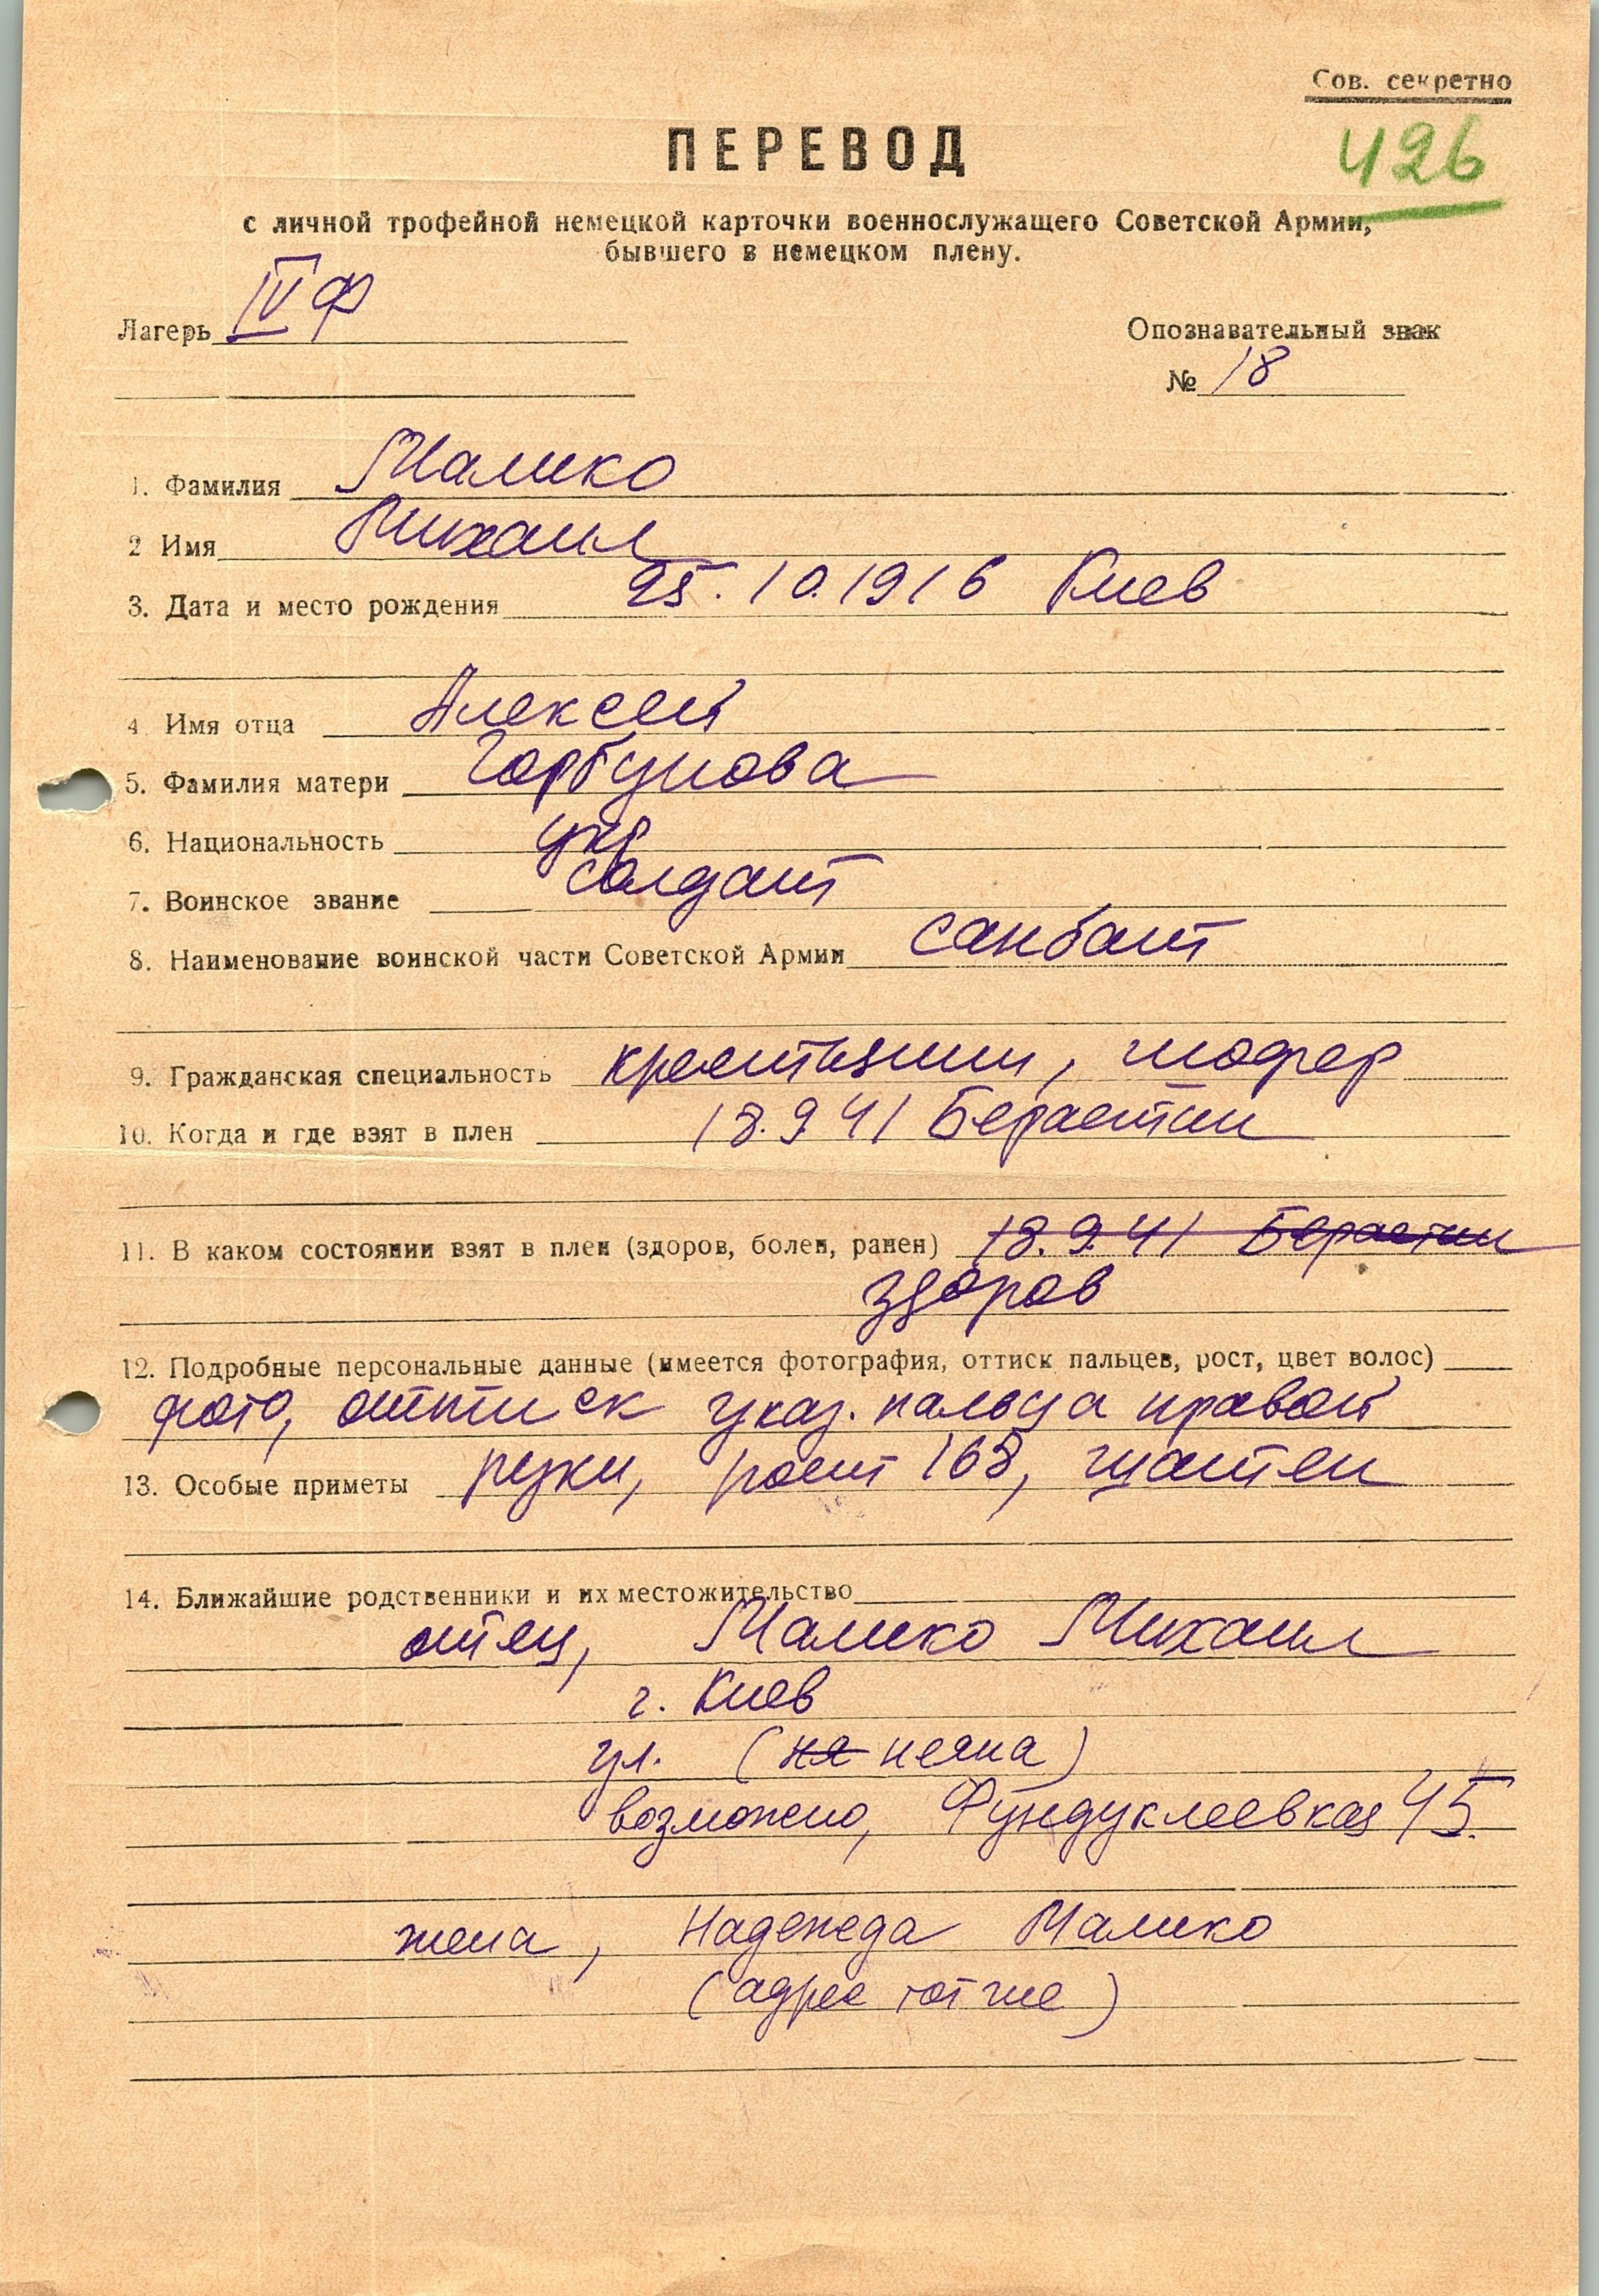 Сов. секретно
426
ПЕРЕВОД
с личной трофейной немецкой карточки военнослужащего Советской Армии,
бывшего в немецком плену.
Лагерь IV Ф
Опознавательный знак
№ 18
1. Фамилия Малико
2 Имя Михаил
3. Дата и место рождения 25.10.1916 Киев
4 Имя отца Алексей
5. Фамилия матери Горбунова
6. Национальность укр
7. Воинское звание солдат
8. Наименование воинской части Советской Армии санбат
9. Гражданская специальность крестьянин, шофер
10. Когда и где взят в плен 18.9.41 Берестин
11. В каком состоянии взят в плен (здоров, болен, ранен) 18.9.41 Берестин
здоров
12. Подробные персональные данные (имеется фотография, оттиск пальцев, рост, цвет волос)
фото, оттиск указ. пальца правой
13. Особые приметы руки, рост 168, шатен
14. Ближайшие родственники и их местожительство
отец, Малико Михаил
г. Киев
ул. (ня неяна)
возможно, Фундуклеевкая 45.
жена, Надежда Малико
(адрес тот же)